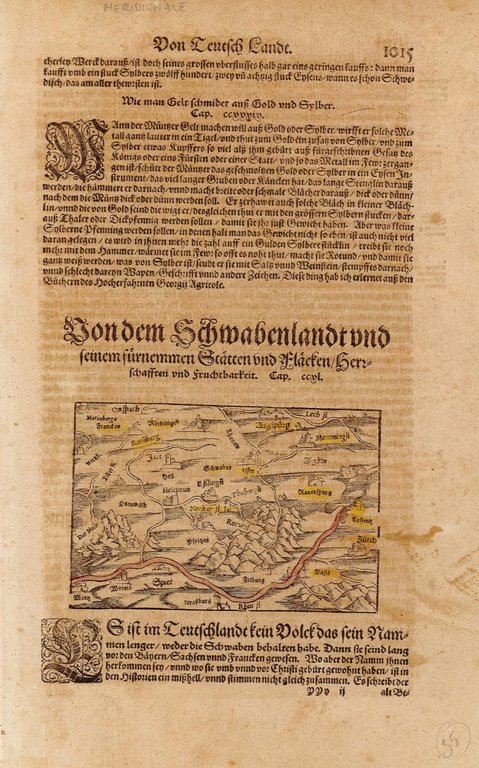 MERIDIONALE
Von Teutsch Landt. 1015
cherley Werck darauß / ist doch seines grossen überflusses halb gar eins geringen kauffs: dann man
kaufft vmb ein stuck Sylbers zwölff hundert, zwey vñ achtzig stuck Eysens / wann es schon Schwe-
disch / das am aller thewrsten ist.
Wie man Gelt schmidet auß Gold vnd Sylber.
Cap.
WAnn der Müntzer Gelt machen will auß Gold oder Sylber / wirfft er solche Me-
tall gantz lauter in ein Tigel / vnd thut zum Gold ein zusatz von Sylber / vnd zum
Sylber etwas Kupffers so viel alß jhm gebürt auß fürgeschribnen Gesatz des
Königs oder eins Fürsten oder einer Statt / vnd so das Metall im Fewr zergan-
gen ist / schütt der Müntzer das geschmoltzen Gold oder Sylber in ein Eysen In-
strument / das viel langer Gruben oder Känelen hat / das lange Stenglin darauß
werden / die hämmert er darnach / vnnd macht breite oder schmale Blächer darauß / dick oder dünn /
nach dem die Müntz dick oder dünn werden soll. Er zerhawt auch solche Bläch in kleiner Bläch-
lin / vnnd die von Gold seind die wigt er / desgleichen thut er mit den grössern Sylbern stucken / dar-
auß Thaler oder Dickpfennig werden sollen / damit sie jhr just Gewicht haben. Aber was kleine
Sylberne Pfenning werden sollen / in denen halt man das Gewicht nicht so eben / ist auch nicht viel
daran gelegen / es wird in jhnen mehr die zahl auff ein Gulden Sylbers stücklin / treibt sie noch
mehr mit dem Hammer / wärmet sie im Fewr so offt es noht thut / macht sie Rotund / vnd damit sie
gantz weiß werden / was von Sylber ist / seudt er sie mit Saltz vnnd Weinstein / stempfft es darnach /
vnnd schlecht dareyn Wapen / Geschrifft vnnd andere Zeichen. Diese ding hab ich erlernet auß den
Büchern des Hocherfahrnen Georgij Agricole.
Von dem Schwabenlandt vnd
seinem fürnemmen Stätten vnd Fläcken / Herr-
schafften vnd Fruchtbarkeit. Cap. ccxl.
Onspach Lech fl
Nürmberga Nördlingen Augspurg
Francken Memmingen
Rotêburg
Schwaben Ulm
Hall
Heilprun Eßlingen Rauenspurg
Tübingen
Necker fl Costentz
Pfortzen Zürch
Basel
Speer Friburg
Mentz Worms
Straßburg Rhin fl
ES ist im Teutschlandt kein Volck das sein Nam-
men lenger / weder die Schwaben behalten habe. Dann sie seind lang
vor den Bäyern / Sachsen vnnd Francken gewesen. Wo aber der Namm jhnen
herkommen sey / vnnd wo sie vnb vnnd vor Christi gebürt gewohnt haben / ist in
den Historien ein mißhell / vnnd stimmen nicht gleich zusammen. Es schreibt der
yyy ij alt Be-